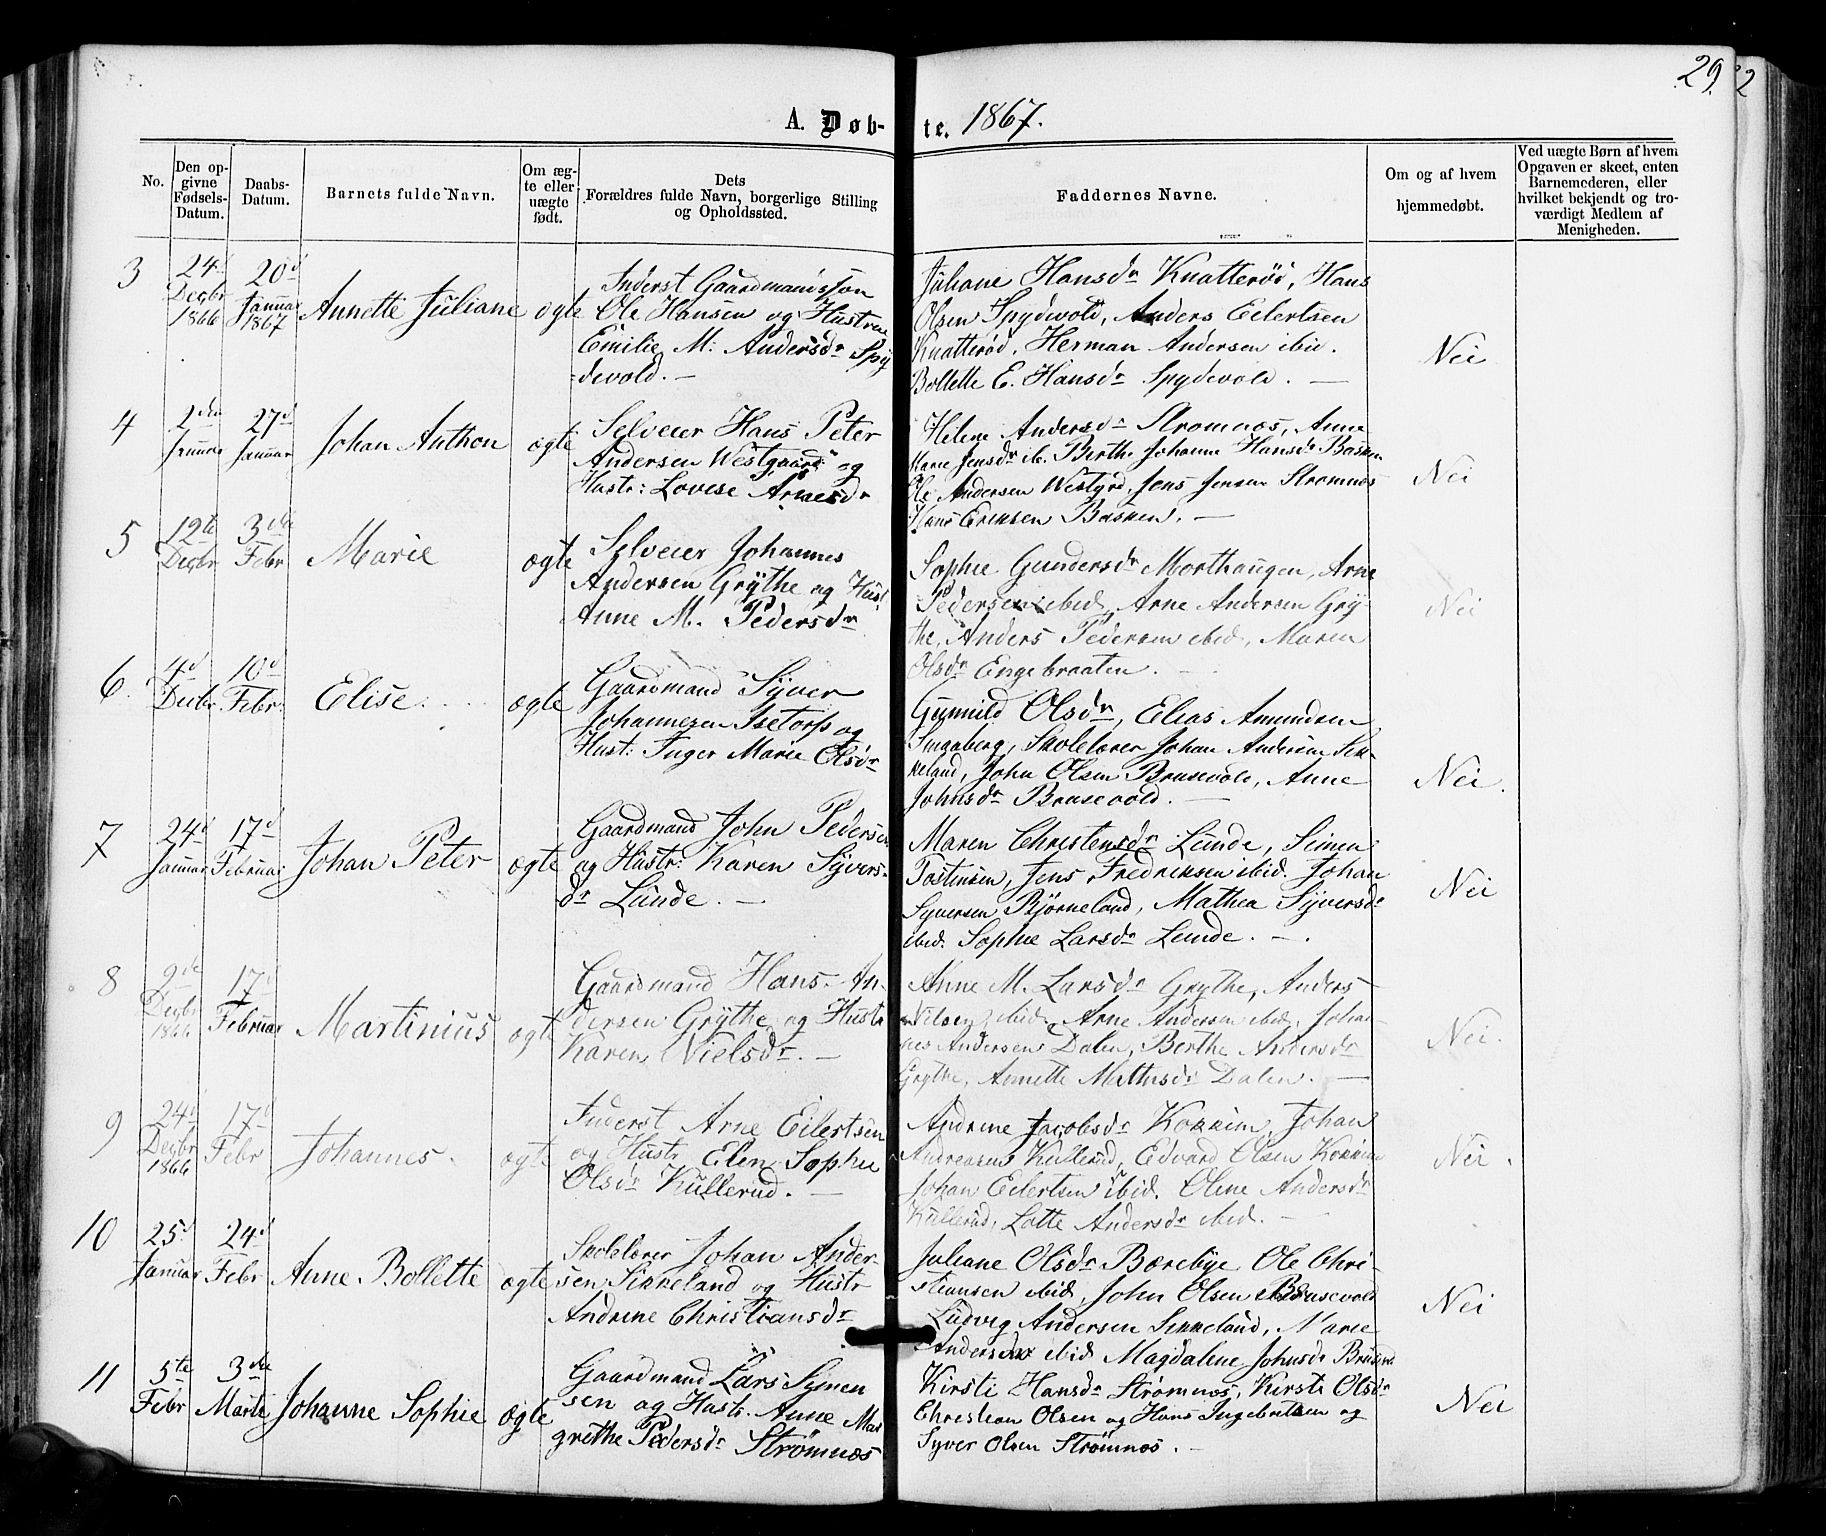 29.
2
A. Døb- te. 1867.
No.
Den op-
givne
Fødsels-
Datum.
Daabs-
Datum.
Barnets fulde Navn.
Om æg-
te eller
uægte
født.
Dets
Forældres fulde Navn, borgerlige Stilling
og Opholdssted.
Faddernes Navne.
Om og af hvem
hjemmedøbt.
Ved uægte Børn af hvem
Opgaven er skeet, enten
Barnemoderen, eller
hvilket bekjendt og tro-
værdigt Medlem af
Menigheden.
3
24d
Decbr
1866
20d
Januar
1867
Annette Juliane
ægte
Inderst Gaardmandssøn
Ole Hansen og Hustrue
Emilie M: Andersdr Spy
=devold. —
Juliane Hansdr Knatterød, Hans
Olsen Spydevold, Anders Eilertsen
Knatterød, Herman Andersen ibid.
Bollette E. Hansdr Spydevold. —
Nei
4
2den
Januar
27d
Januar
Johan Anthon
ægte
Selveier Hans Peter
Andersen Westgaard og
Hustr: Lovise Arnesdr
Helene Andersdr Strømnæs, Anne
Marie Jensdr ib. Berthe Johanne Hansdr Basken
Ole Andersen Westgrd, Jens Jensen Strømnæs
Hans Eriksen Basken. —
Nei
5
12te
Decbr
3die
Febr
Marie
ægte
Selveier Johannes
Andersen Grythe og Hust
Anne M. Pedersdr
Sophie Gundersdr Morthaugen, Arne
Pedersen ibid, Arne Andersen Gry-
the, Anders Pedersen ibid, Maren
Olsdr Engebraaten. —
Nei
6.
4d
Decbr
10d
Febr.
Elise.
ægte
Gaardmand Syver
Johannesen Isetorp og
Hust: Inger Marie Olsdr
Gunnild Olsdr, Elias Amundsen
Ingaberg, Skolelærer Johan Andersen Sik-
keland, John Olsen Brusevold, Anne
Johnsdr Brusevold. —
Nei.
7
24d
Januar
17d
Februar
Johan Peter
ægte
Gaardmand John Pedersen
og Hustr: Karen Syvers-
dr Lunde. —
Maren Christensdr Lunde, Simen
Tostensen, Jens Fredriksen ibid. Johan
Syversen Bjørneland, Mathea Syversdr
ibid. Sophie Larsdr Lunde. —.
Nei
8
9de
Decbr
1866
17d
Februar
Martinius
ægte
Gaardmand Hans An-
dersen Grythe og Hustr
Karen Nielsdr. —
Anne M. Larsdr Grythe, Anders
Nilsen ibid, Arne Andersen ibid, Johan-
nes Andersen Dalen, Berthe Andersdr
Grythe, Annette Mathisdr Dalen. —
Nei.
9
24d
Decbr
1866
17d
Febr
Johannes.
ægte
Inderst Arne Eilertsen
og Hustr Elen Sophie
Olsdr Kullerud. —
Andrine Jacobsdr Kokkim, Johan
Andreasen Kullerud, Edvard Olsen Kokkim
Johan Eilertsen ibid. Oline Andersdr
Kullerud, Lotte Andersdr ibid. —
Nei.
10
25d
Januar
24d
Febr
Anne Bollette
ægte
Skolelærer Johan Ander-
sen Sikkeland og Hustr
Andrine Christiansdr
Juliane Olsdr Bærebye Ole Chri-
stiansen ibid, John Olsen Brusevold
Ludvig Andersen Sikkeland, Marie
Andersdr ibid Magdalene Johnsdr Brusev
Nei
11
5te
Febr
3die
Marti
Johanne Sophie
ægte
Gaardmand Lars Symen
sen og Hustr. Anne Mar
grethe Pedersdr Strømnæs
Kirsti Hansdr Strømnæs, Kirsti Olsdr
Christian Olsen og Hans Ingebretsen og
Syver Olsen Strømnæs. —
Nei